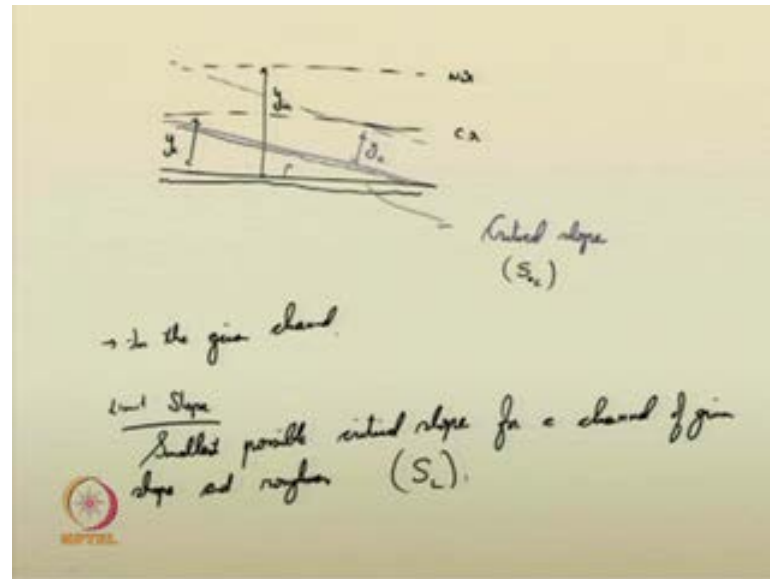 N.D.L
C.D.L
yn
yc
yc
Critical slope
(Soc)
→ In the given channel.
Limit Slope
Smallest possible critical slope for a channel of given
shape and roughness (SL).
NPTEL